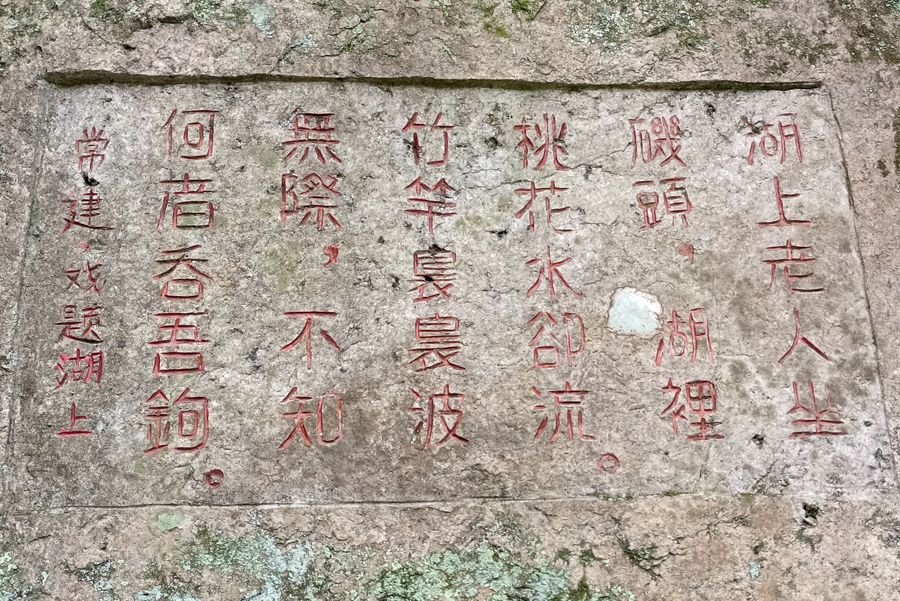 湖上老人坐
磯頭，湖裡
桃花水卻流。
竹竿裊裊波
無際，不知
何者吞吾鉤。
常建·戏题湖上